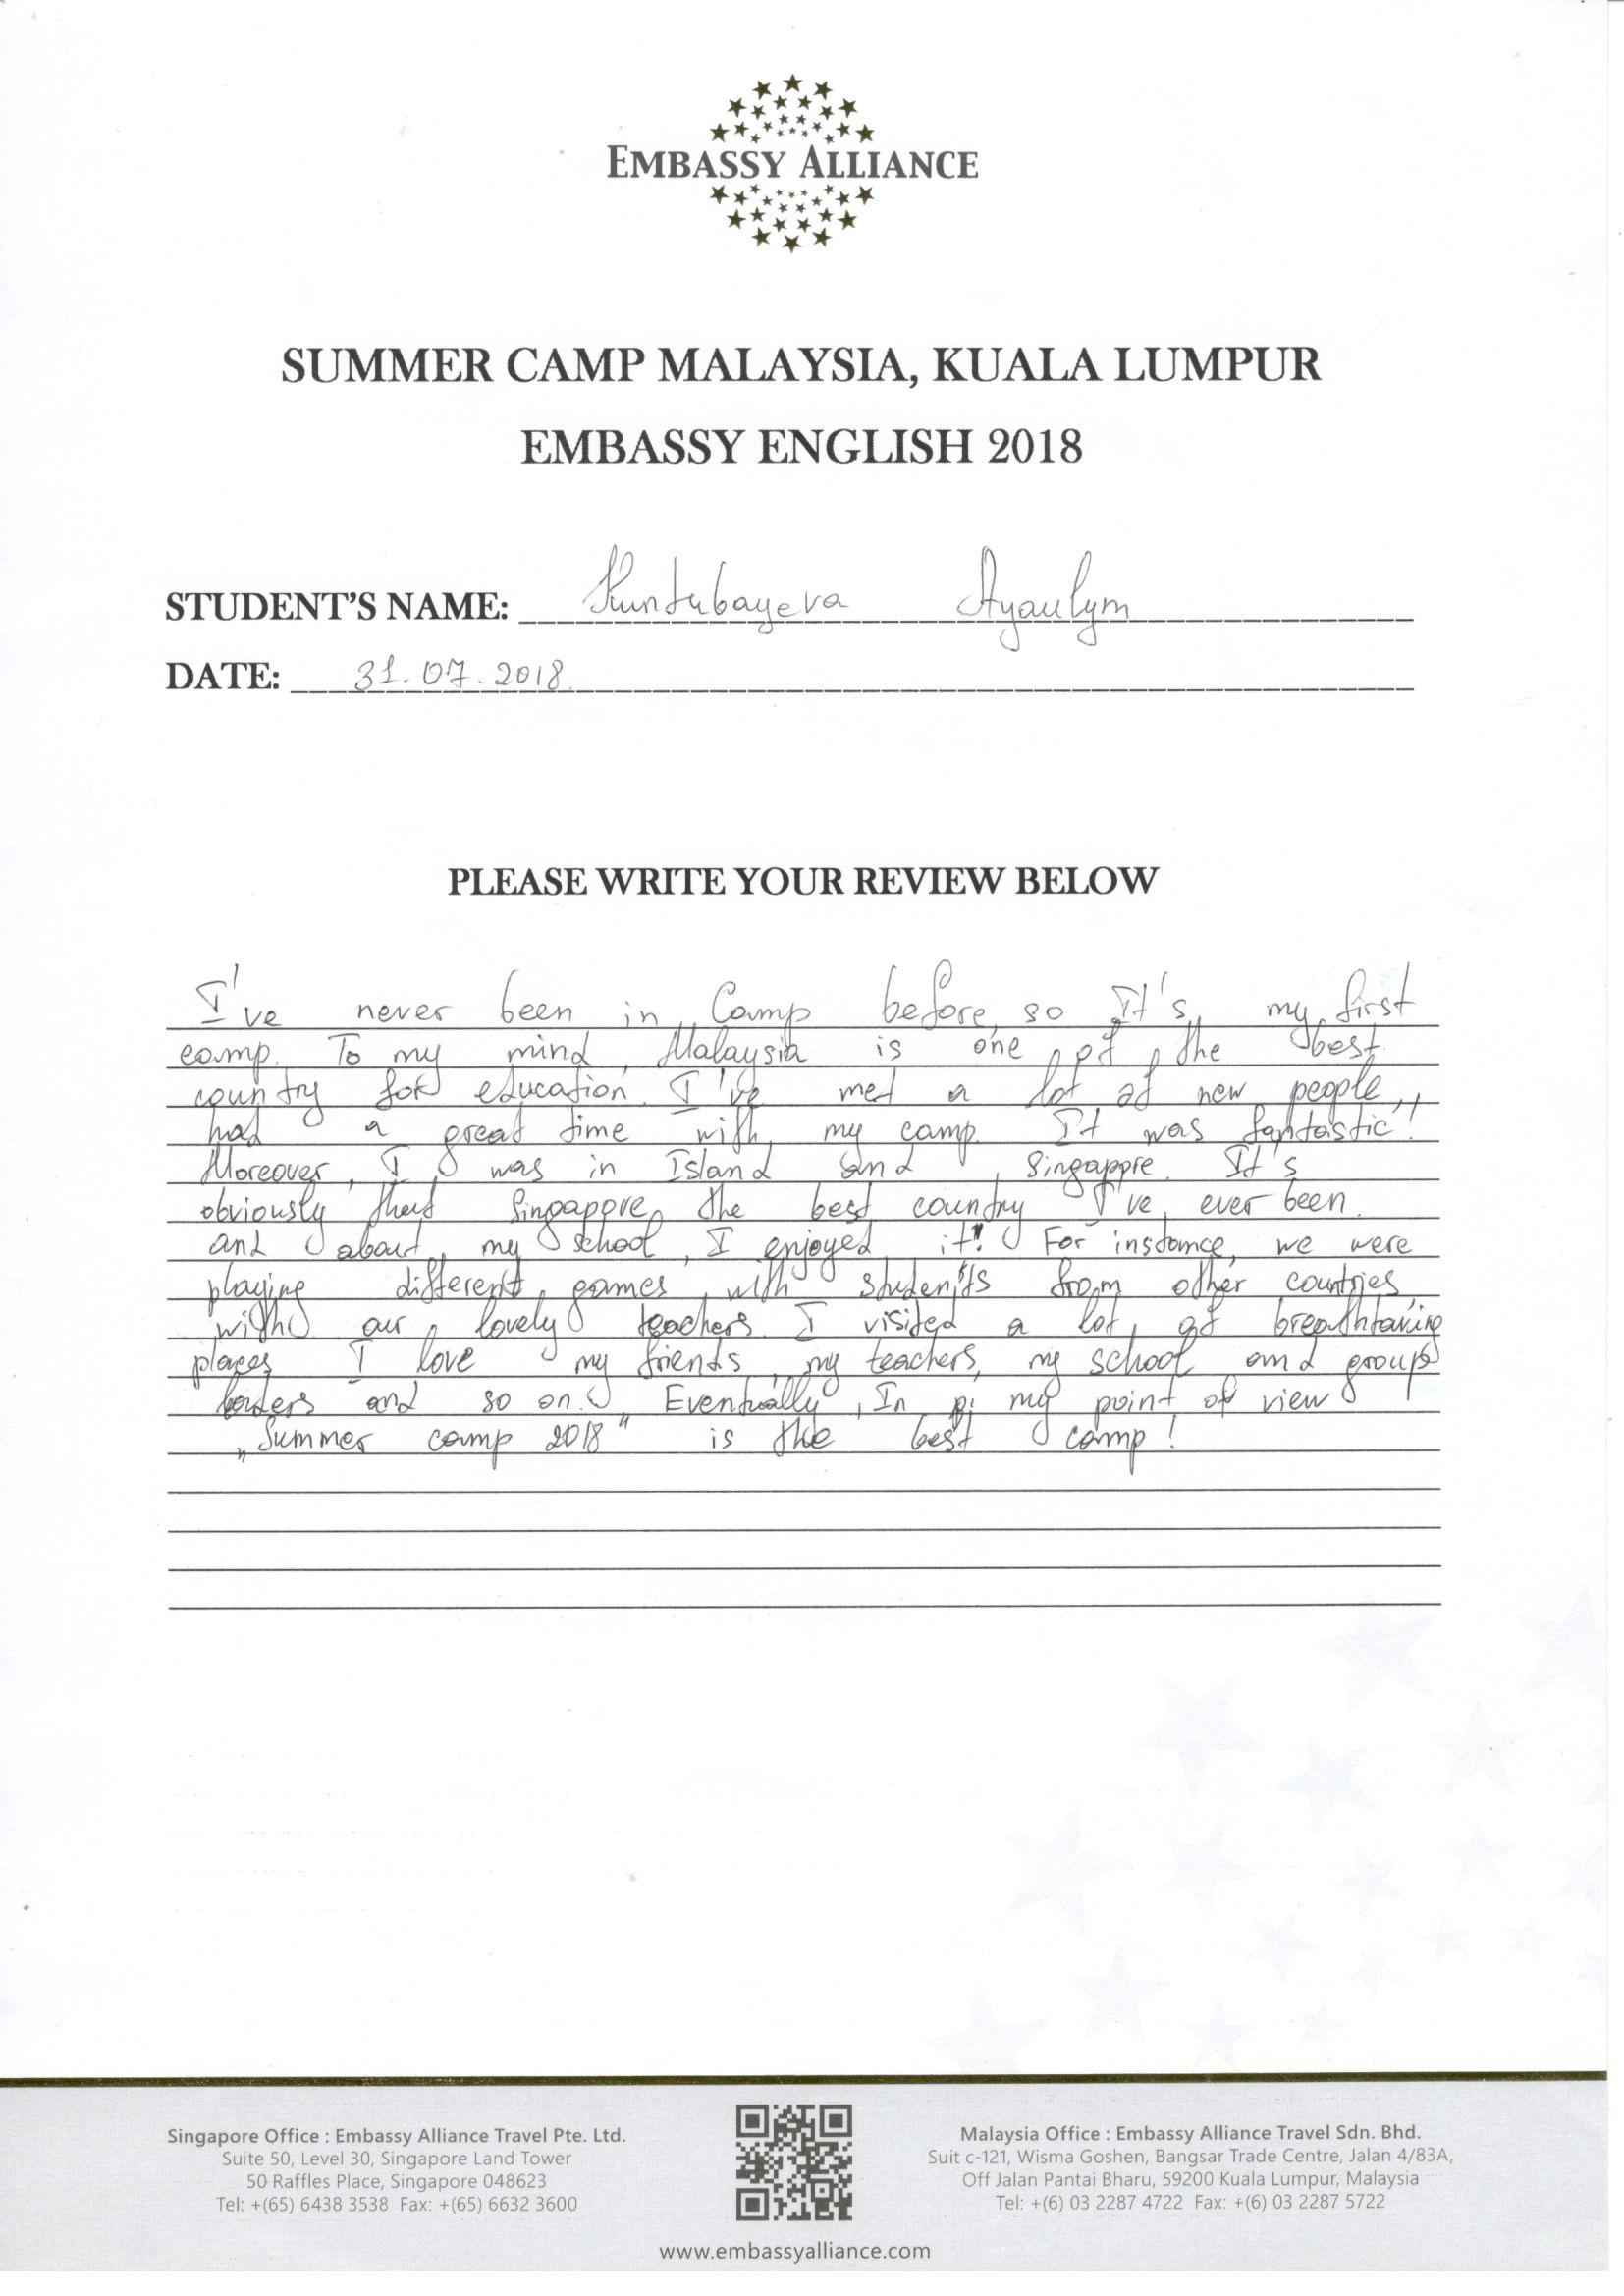 EMBASSY ALLIANCE
SUMMER CAMP MALAYSIA, KUALA LUMPUR
EMBASSY ENGLISH 2018
STUDENT'S NAME: Ayaulym
DATE: 31.07.2018
PLEASE WRITE YOUR REVIEW BELOW
I've never been in Camp before, so It's my first
camp. To my mind, Malaysia is one of the best
country for education. I've met a lot of new people,
had a great time with my camp. It was fantastic!
Moreover, I was in Island and Singapore. It's
obviously that Singapore the best country I've ever been.
and about my school, I enjoyed it! For instance, we were
playing different games with students from other countries,
with our lovely teachers. I visited a lot of breathtaking
places. I love my friends, my teachers, my school and group
leaders and so on. Eventually, In my point of view
„Summer camp 2018" is the best camp!
Singapore Office : Embassy Alliance Travel Pte. Ltd.
Suite 50, Level 30, Singapore Land Tower
50 Raffles Place, Singapore 048623
Tel: +(65) 6438 3538 Fax: +(65) 6632 3600
Malaysia Office : Embassy Alliance Travel Sdn. Bhd.
Suit c-121, Wisma Goshen, Bangsar Trade Centre, Jalan 4/83A,
Off Jalan Pantai Bharu, 59200 Kuala Lumpur, Malaysia
Tel: +(6) 03 2287 4722 Fax: +(6) 03 2287 5722
www.embassyalliance.com